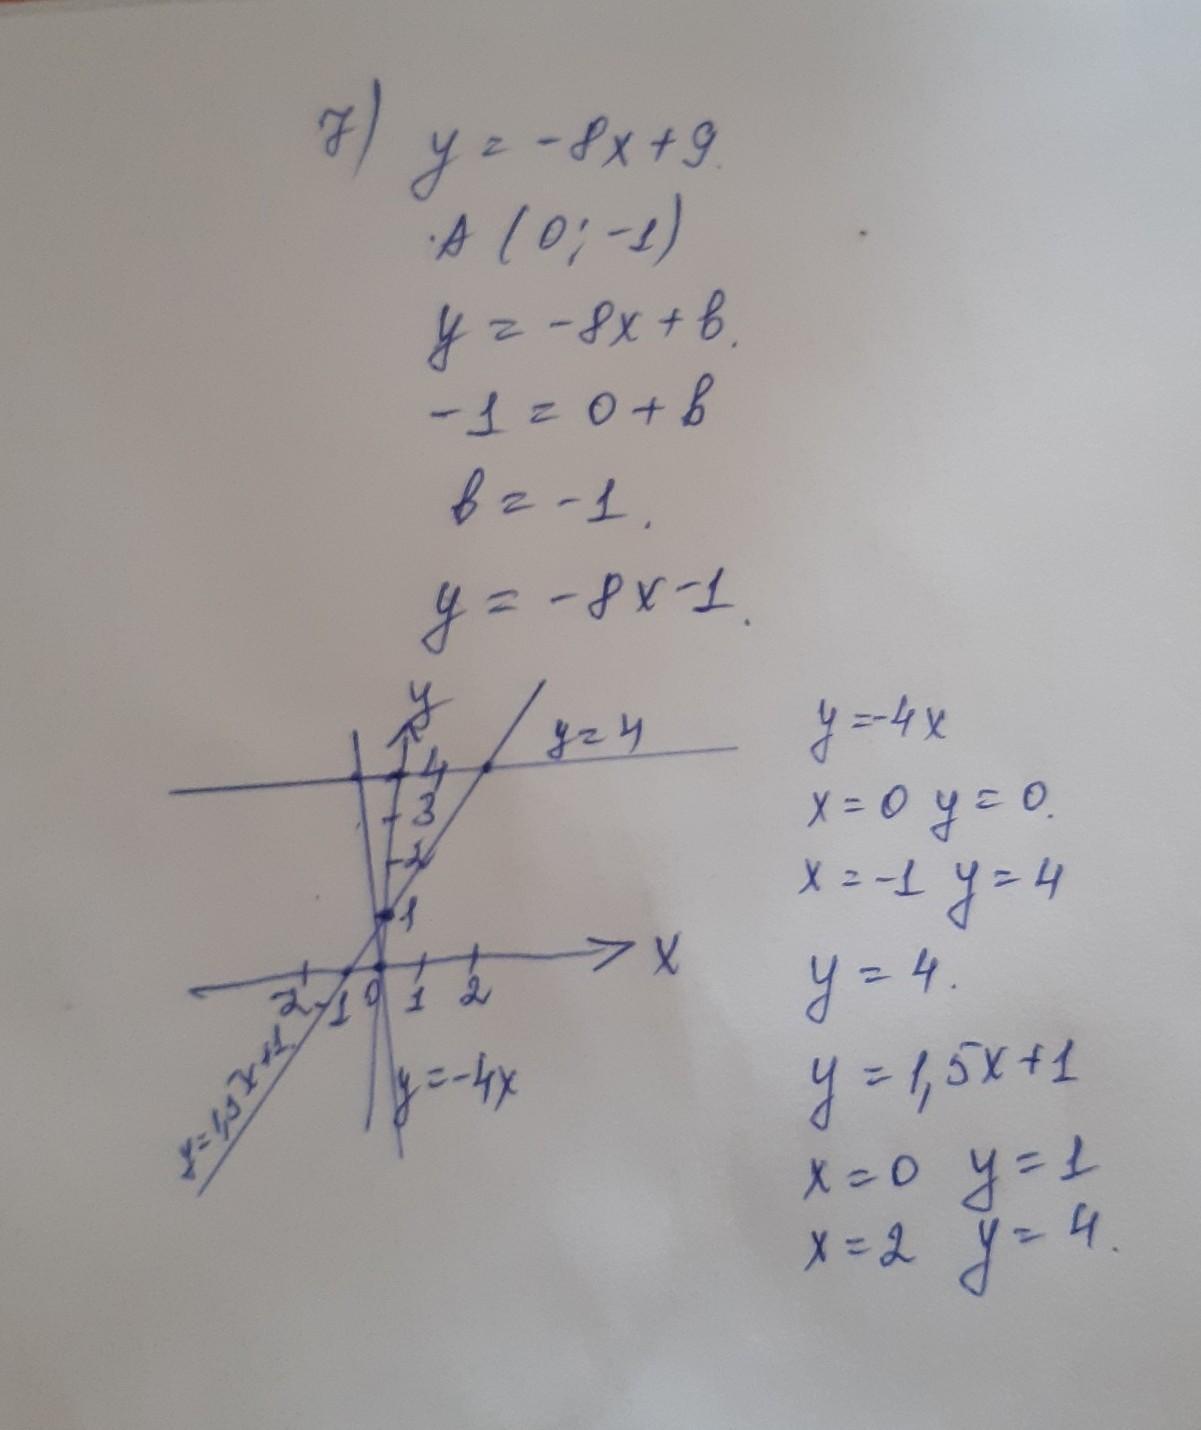 7) y = -8x + 9.
·A (0; -1)
y = -8x + b.
-1 = 0 + b
b = -1.
y = -8x - 1.
y
y = 4
4
3
2
1
x
-2 -1 0 1 2
y = 1,5x + 1
y = -4x
y = -4x
x = 0 y = 0.
x = -1 y = 4
y = 4.
y = 1,5x + 1
x = 0 y = 1
x = 2 y = 4.